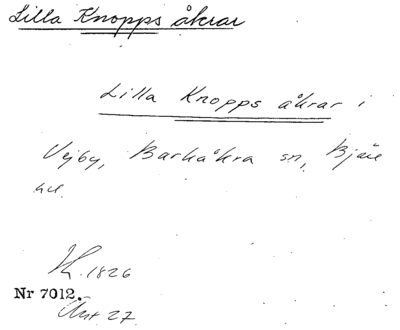 Lilla Knopps åkrar
Lilla Knopps åkrar i
Vejby, Barkåkra sn, Bjäre
hd.
1826
Nr 7012.
27